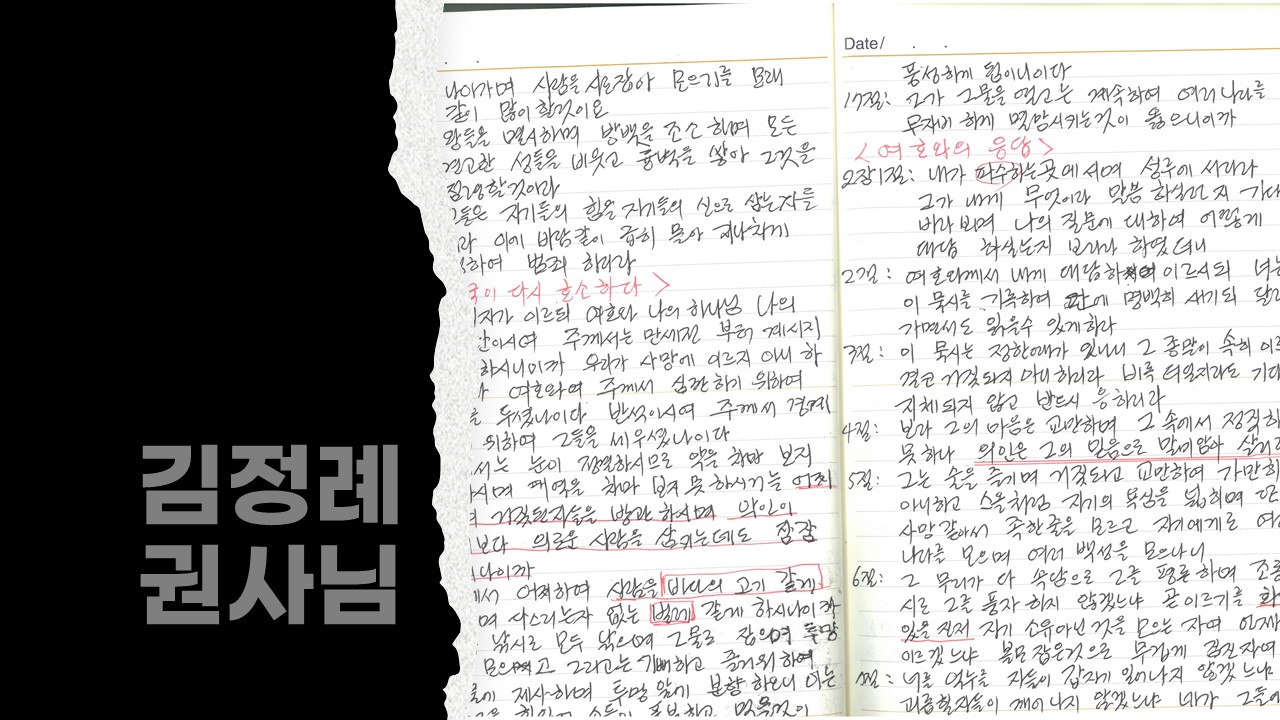 김정례
권사님
나아가며 사람을 사로잡아 모으기를 모래
같이 많이 할것이요
왕들을 멸시하며 방백을 조소하며 모든
견고한 성들을 비웃고 흉벽을 쌓아 그것을
점령할것이라
그들은 자기들의 힘을 자기들의 신으로 삼는자들
라 이에 바람같이 급히 몰아 지나치게
하여 범죄 하리라
이 다시 호소하다 >
자가 이르되 여호와 나의 하나님 나의
이시여 주께서는 만세전 부터 계시지
하시나이까 우리가 사망에 이르지 아니 하
여호와여 주께서 심판하기 위하여
를 두셨나이다 반석이시여 주께서 경계
위하여 그들을 세우셨나이다
서는 눈이 정결하시므로 악을 차마 보지
시며 패역을 차마 보지 못하시거늘 어찌
거짓된자들을 방관하시며 악인이
보다 의로운 사람을 삼키는데도 잠잠
나이까
서 어찌하며 사람을 바다의 고기 같게
며 다스리는자 없는 벌레 같게 하시나이까
낚시로 모두 낚으며 그물로 잡으며 투망
모으고 그리고는 기뻐하고 즐거워하여
에 제사하며 투망 앞에 분향하오니 이는
Date/ . .
풍성하게 됨이니이다
17절: 그가 그물을 떨고는 계속하여 여러 나라를
무자비 하게 멸망시키는것이 옳으니이까
< 여호와의 응답 >
2장1절: 내가 파수하는곳에 서며 성루에 서리라
그가 내게 무엇이라 말씀 하실런지 기다
바라보며 나의 질문에 대하여 어떻게
대답 하실는지 보리라 하였더니
2절: 여호와께서 내게 대답하여 이르시되 너는
이 묵시를 기록하여 판에 명백히 새기되 달려
가면서도 읽을수 있게하라
3절: 이 묵시는 정한때가 있나니 그 종말이 속히 이르
결코 거짓되지 아니하리라 비록 더딜지라도 기다
지체되지 않고 반드시 응하리라
4절: 보라 그의 마음은 교만하며 그 속에서 정직하
못하나 의인은 그의 믿음으로 말미암아 살리
5절: 그는 술을 즐기며 거짓되고 교만하여 가만히
아니하고 스올처럼 자기의 욕심을 넓히며 또
사망같아서 족한줄을 모르고 자기에게로 여러
나라를 모으며 여러 백성을 모으나니
6절: 그 무리가 다 속담으로 그를 평론하며 조롱
시로 그를 풍자 하지 않겠느냐 곧 이르기를 화
있을 진저 자기 소유아닌것을 모으는 자여 언제까
이르겠느냐 볼모 잡은것으로 무겁게 짐진자여
7절: 너를 억누를 자들이 갑자기 일어나지 않겠느냐
괴롭힐자들이 깨어나지 않겠느냐 네가 그들에